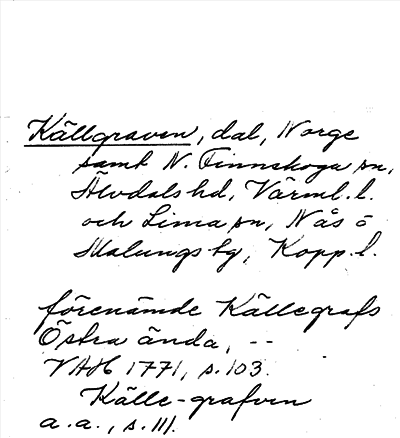 Källgraven, dal, Norge
samt N. Finnskoga sn,
Älvdals hd, Värml. l.
och Lima sn, Nås o
Malungs tg, Kopp. l.
förenämde Källegrafs
Östra ända, --
VAH 1771, s. 103.
Källe-grafven
a.a., s. 111.